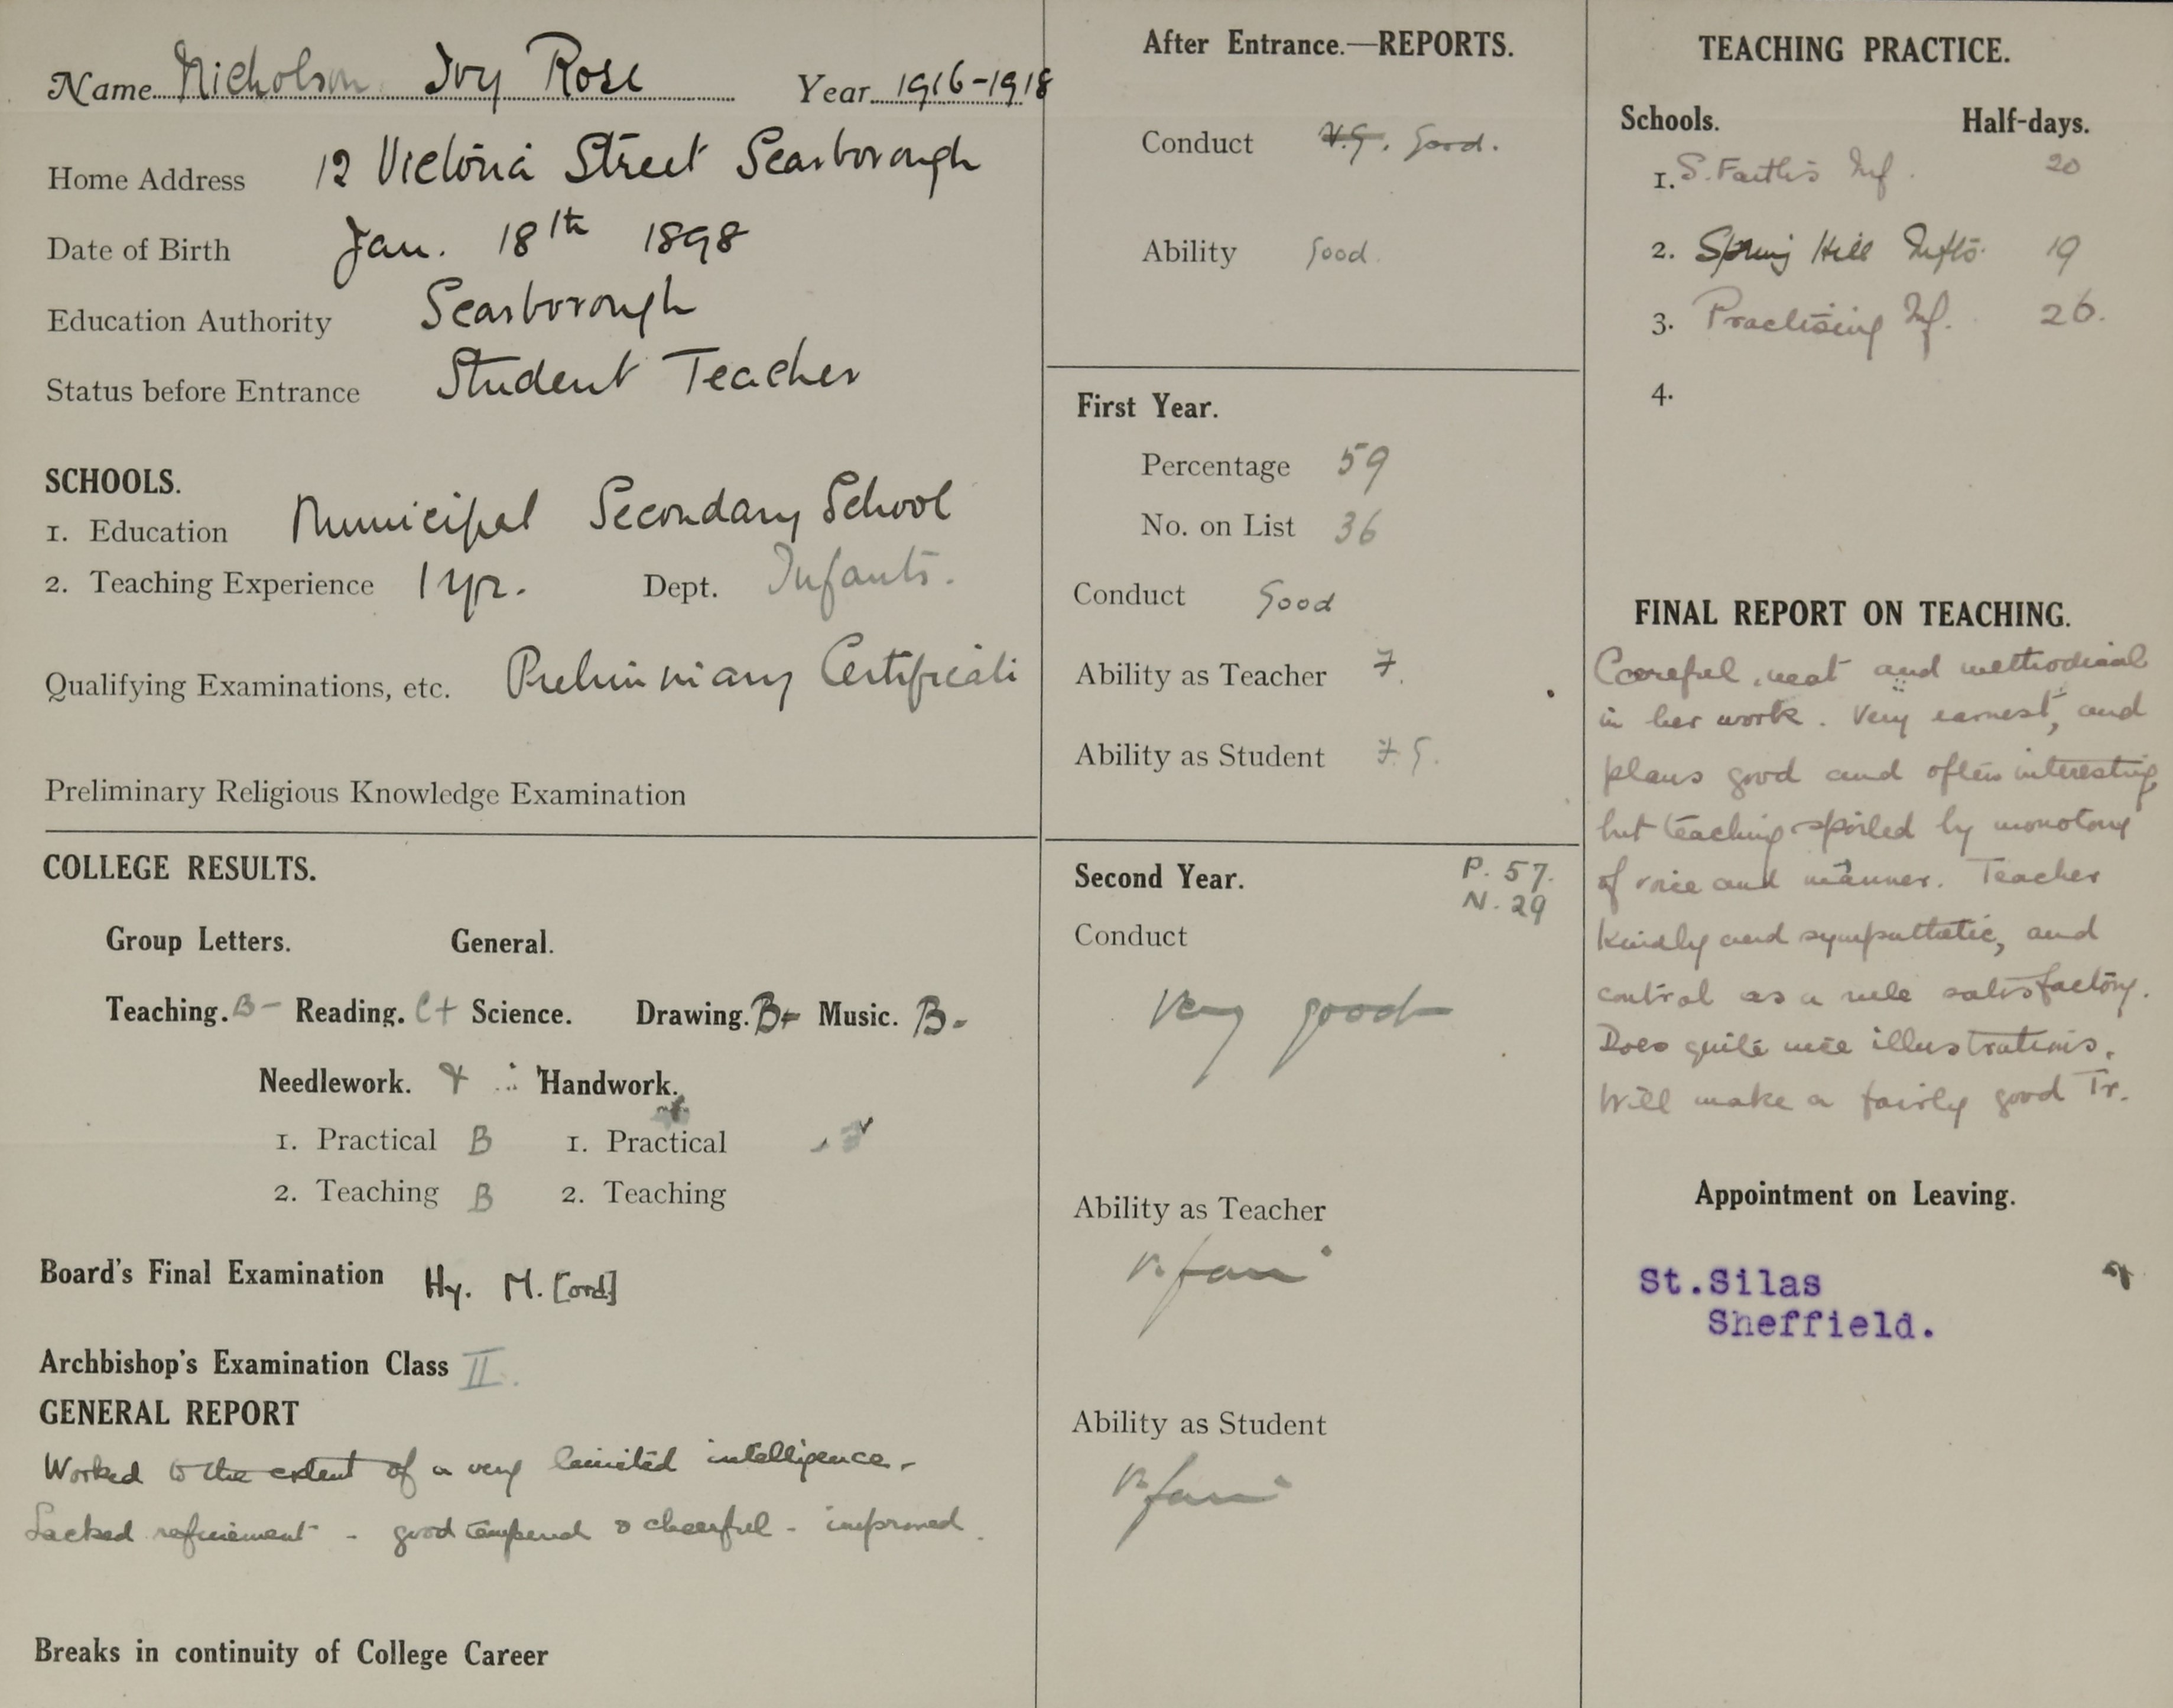 Name Nicholson Ivy Rose Year 1916-1918
Home Address 12 Victoria Street Scarborough
Date of Birth Jan. 18th 1898
Education Authority Scarborough
Status before Entrance Student Teacher
SCHOOLS.
1. Education Municipal Secondary School
2. Teaching Experience 1 yr. Dept. Infants.
Qualifying Examinations, etc. Preliminary Certificate
Preliminary Religious Knowledge Examination
COLLEGE RESULTS.
Group Letters. General.
Teaching. B- Reading. C+ Science. Drawing. B+ Music. B-
Needlework. Handwork.
1. Practical B 1. Practical
2. Teaching B 2. Teaching
Board's Final Examination Hy. M. [ord]
Archbishop's Examination Class II.
GENERAL REPORT
Worked to the extent of a very limited intelligence.-
Lacked refinement - good tempered & cheerful - improved.
Breaks in continuity of College Career
After Entrance.—REPORTS.
Conduct V.G. Good.
Ability Good.
First Year.
Percentage 59
No. on List 36
Conduct Good
Ability as Teacher F.
Ability as Student F.G.
Second Year. P. 57.
N. 29
Conduct
Very good
Ability as Teacher
V. fair
Ability as Student
V. fair
TEACHING PRACTICE.
Schools. Half-days.
1. S. Faith's Inf. 20
2. Spring Hill Infts. 19
3. Practising Inf. 26.
4.
FINAL REPORT ON TEACHING.
Careful, neat and methodical
in her work. Very earnest, and
plans good and often interesting
but teaching spoiled by monotony
of voice and manner. Teacher
kindly and sympathetic, and
control as a rule satisfactory.
Does quite nice illustrations.
Will make a fairly good Tr.
Appointment on Leaving.
St.Silas
Sheffield.